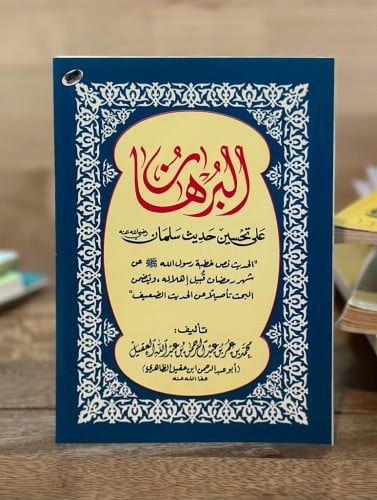 البرهان
على تحسين حديث سلمان رضي الله عنه
"الحديث نص خطبة رسول الله ﷺ عن
شهر رمضان قُبيل إهلاله، ويتضمن
البحث تأصيلاً عن الحديث الضعيف"
تأليف:
محمد بن عمر بن عبد الرحمن بن عبد الله العقيل
(أبو عبد الرحمن ابن عقيل الظاهري)
عفا الله عنه